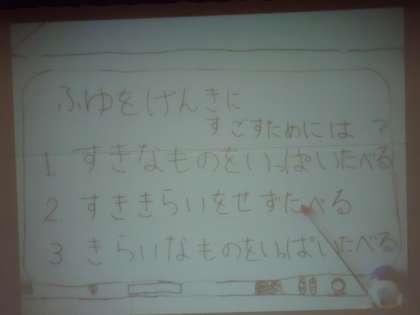 ふゆをげんきに
すごすためには?
1. すきなものをいっぱいたべる
2. すききらいをせずたべる
3. きらいなものをいっぱいたべる